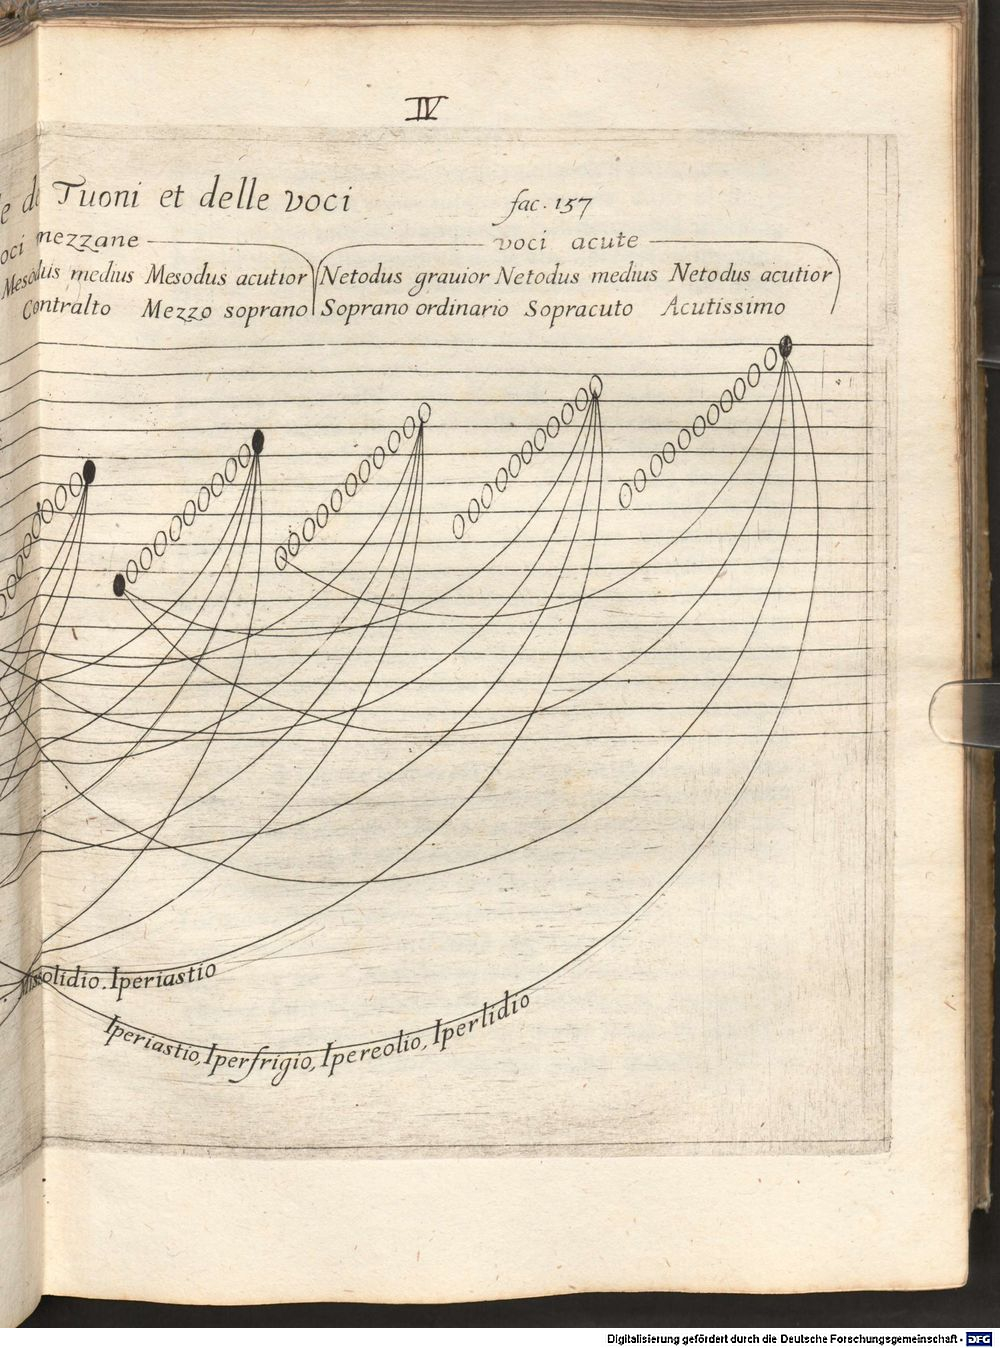 IV
Tuoni et delle voci
fac. 157
mezzane
voci acute
Mesodus medius Mesodus acutior Netodus gravior Netodus medius Netodus acutior
Contralto Mezzo soprano Soprano ordinario Sopracuto Acutissimo
Iperiastio
Iperiastio, Iperfrigio, Ipereolio, Iperlidio
Digitalisierung gefördert durch die Deutsche Forschungsgemeinschaft - DFG